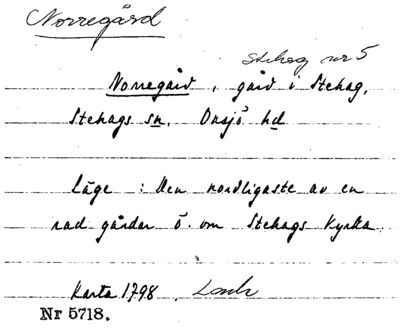 Norregård
Stehag nr 5
Norregård, gård i Stehag,
Stehags sn. Onsjö hd
Läge: Den nordligaste av en
rad gårdar ö. om Stehags Kyrka.
Karta 1798.
Nr 5718.